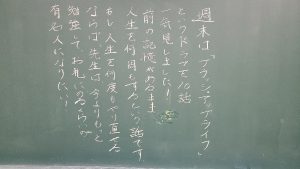 週末は「ブラッシュアップライフ」
というドラマを10話
一気見しました!
前の記憶があるまま
人生を何回もするという話です
もし人生を何度もやり直せる
ならば、先生は今よりもっと
勉強してお札にのるくらいの
有名人になりたい!